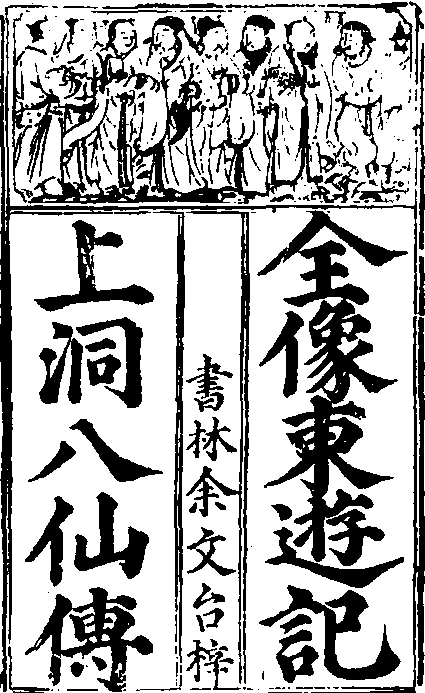 全像東遊記
書林余文台梓
上洞八仙傳